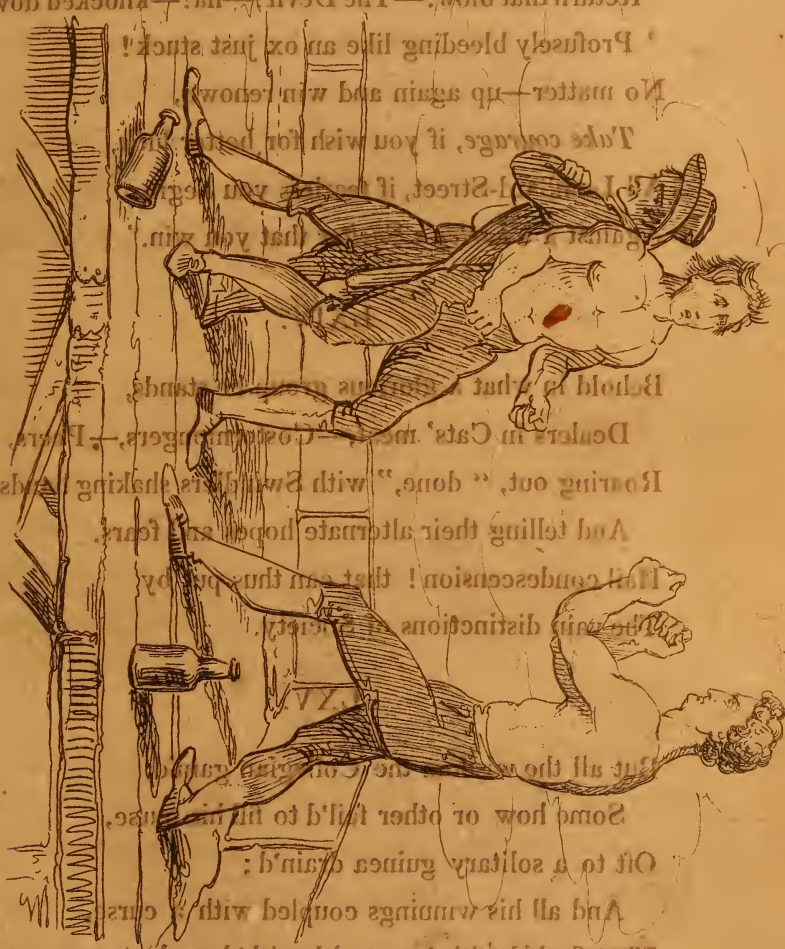 Return that blow!—The Devil!—ha!—knocked
' Profusely bleeding like an ox just stuck!
No matter—up again and win renown,
Take courage, if you wish for better
All -Street, if you
that you win.'
Behold in what a glorious group he stands,
Dealers in Cats' meat,—Costermongers,—Peers,
Roaring out, “ done,” with Swindlers shaking hands
And telling their alternate hopes and fears.
Hail condescension ! that can thus put by
The vain distinctions of Society.
XV
But all the the
Some how or other fail'd to fill his purse,
Oft to a solitary guinea drain'd ;
And all his winnings coupled with a curse